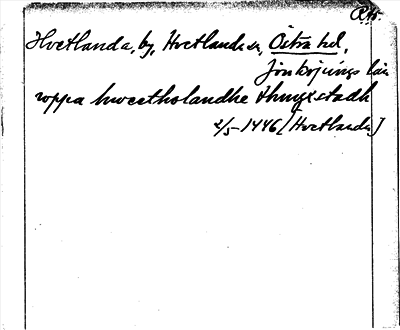 RA.
Hvetlanda, by, Hvetlanda sn, Östra hd,
Jönköpings län
uppa hweetholandhe thingxstadh
2/5 1446 [Hvetlanda]